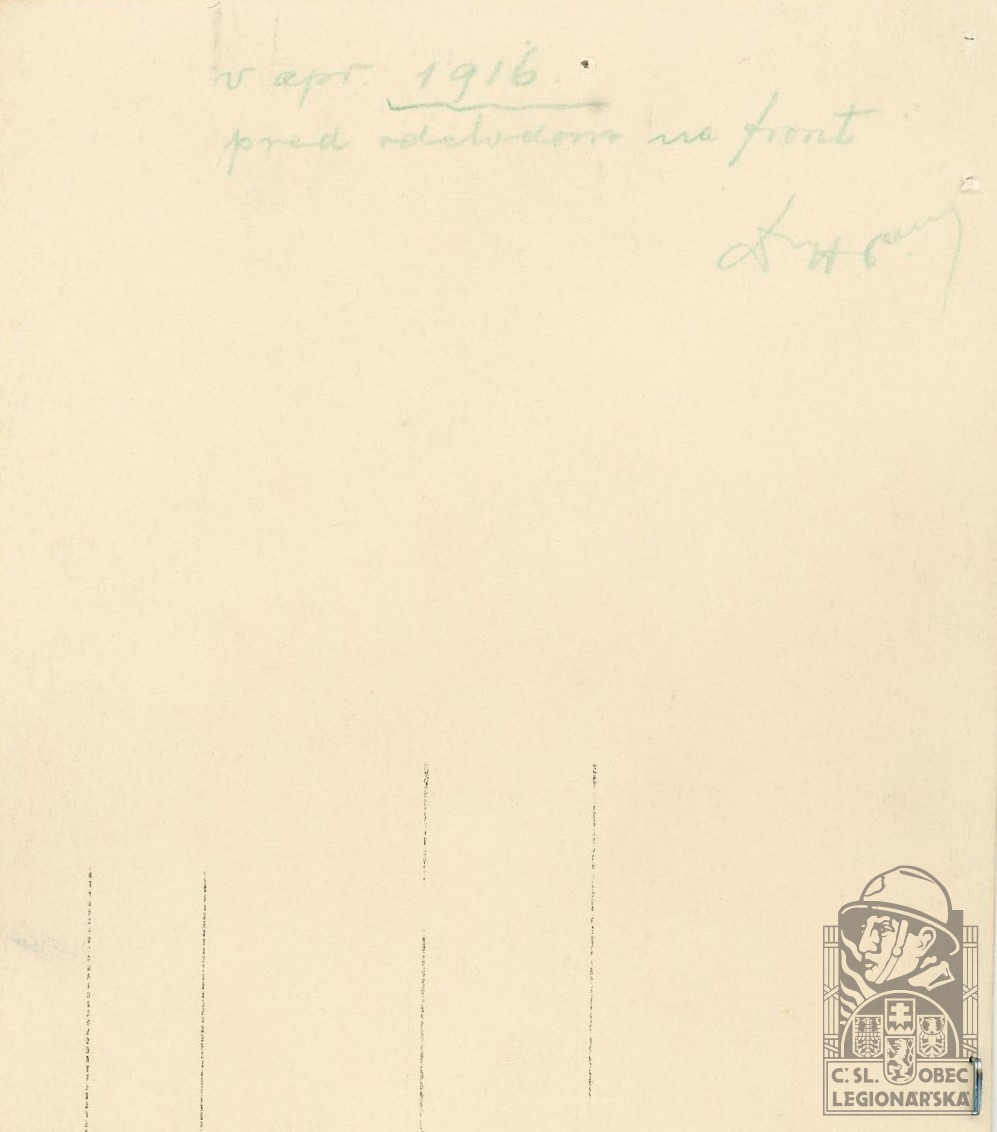 v apr 1916
pred odchodom na front
Č.SL. OBEC
LEGIONÁŘSKÁ